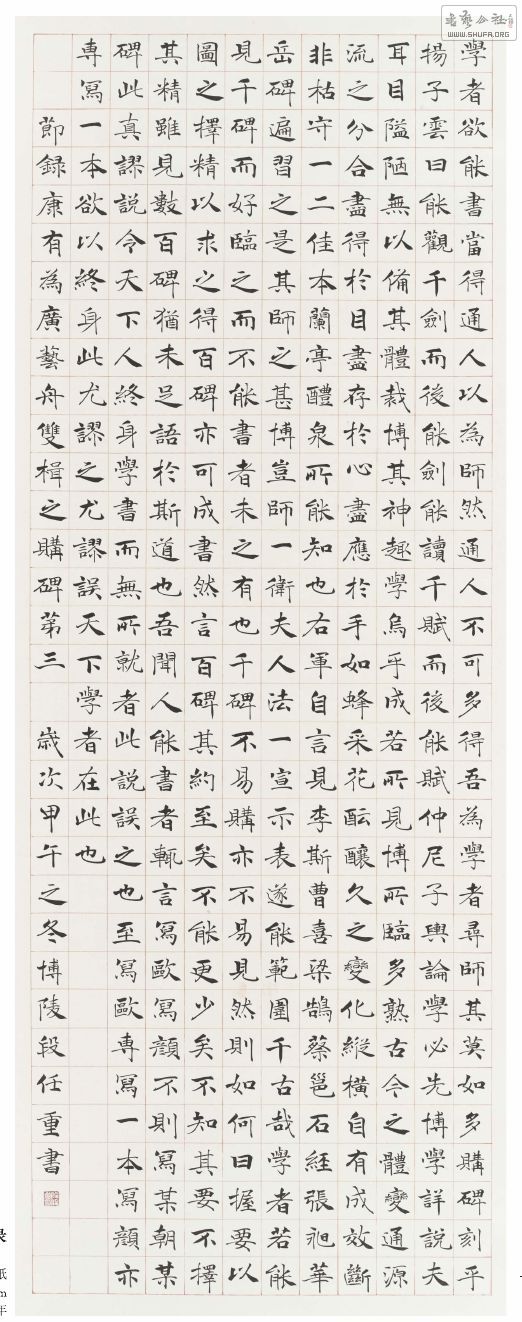 學者欲能書當得通人以為師然通人不可多得吾為學者尋師其莫如多購碑刻乎
揚子雲曰能觀千劍而後能劍能讀千賦而後能賦仲尼子輿論學必先博學詳說夫
耳目隘陋無以備其體裁博其神趣學烏乎成若所見博所臨多熟古今之體變通源
流之分合盡得於目盡存於心盡應於手如蜂采花酝釀久之變化縱橫自有成效斷
非枯守一二佳本蘭亭醴泉所能知也右軍自言見李斯曹喜梁鵠蔡邕石經張昶華
岳碑遍習之是其師之甚博豈師一衛夫人法一宣示表遂能範圍千古哉學者若能
見千碑而好臨之而不能書者未之有也千碑不易購亦不易見然則如何曰握要以
圖之擇精以求之得百碑亦可成書然言百碑其約至矣不能更少矣不知其要不擇
其精雖見數百碑猶未足語於斯道也吾聞人能書者輒言寫歐寫顏不則寫某朝某
碑此真謬說令天下人終身學書而無所就者此說誤之也至寫歐專寫一本寫顏亦
專寫一本欲以終身此尤謬之尤謬誤天下學者在此也
節録康有為廣藝舟雙楫之購碑第三 歲次甲午之冬博陵段任重書
WWW.SHUFA.ORG